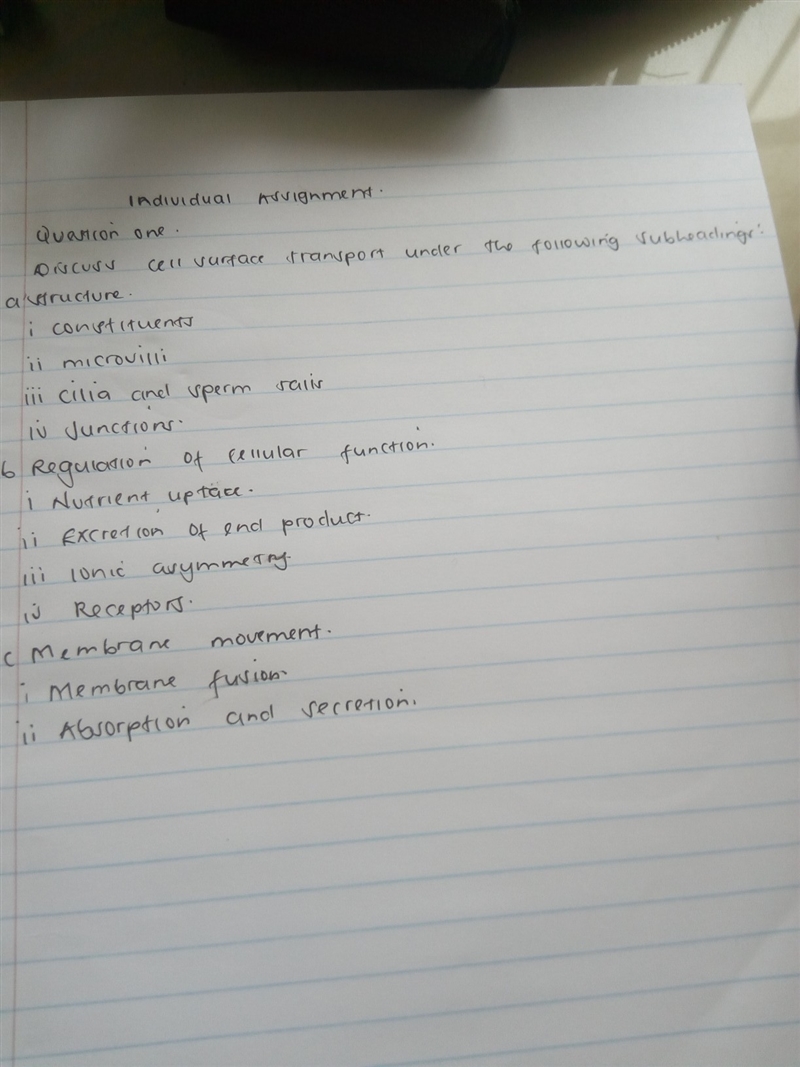 Individual Assignment.
Question one.
Discuss cell surface transport under the following subheadings:
a structure.
i constituents
ii microvilli
iii cilia and sperm tails
iv Junctions.
b Regulation of cellular function.
i Nutrient uptake.
ii Excretion of end product.
iii ionic asymmetry.
iv Receptors.
c Membrane movement.
i Membrane fusion.
ii Absorption and secretion.